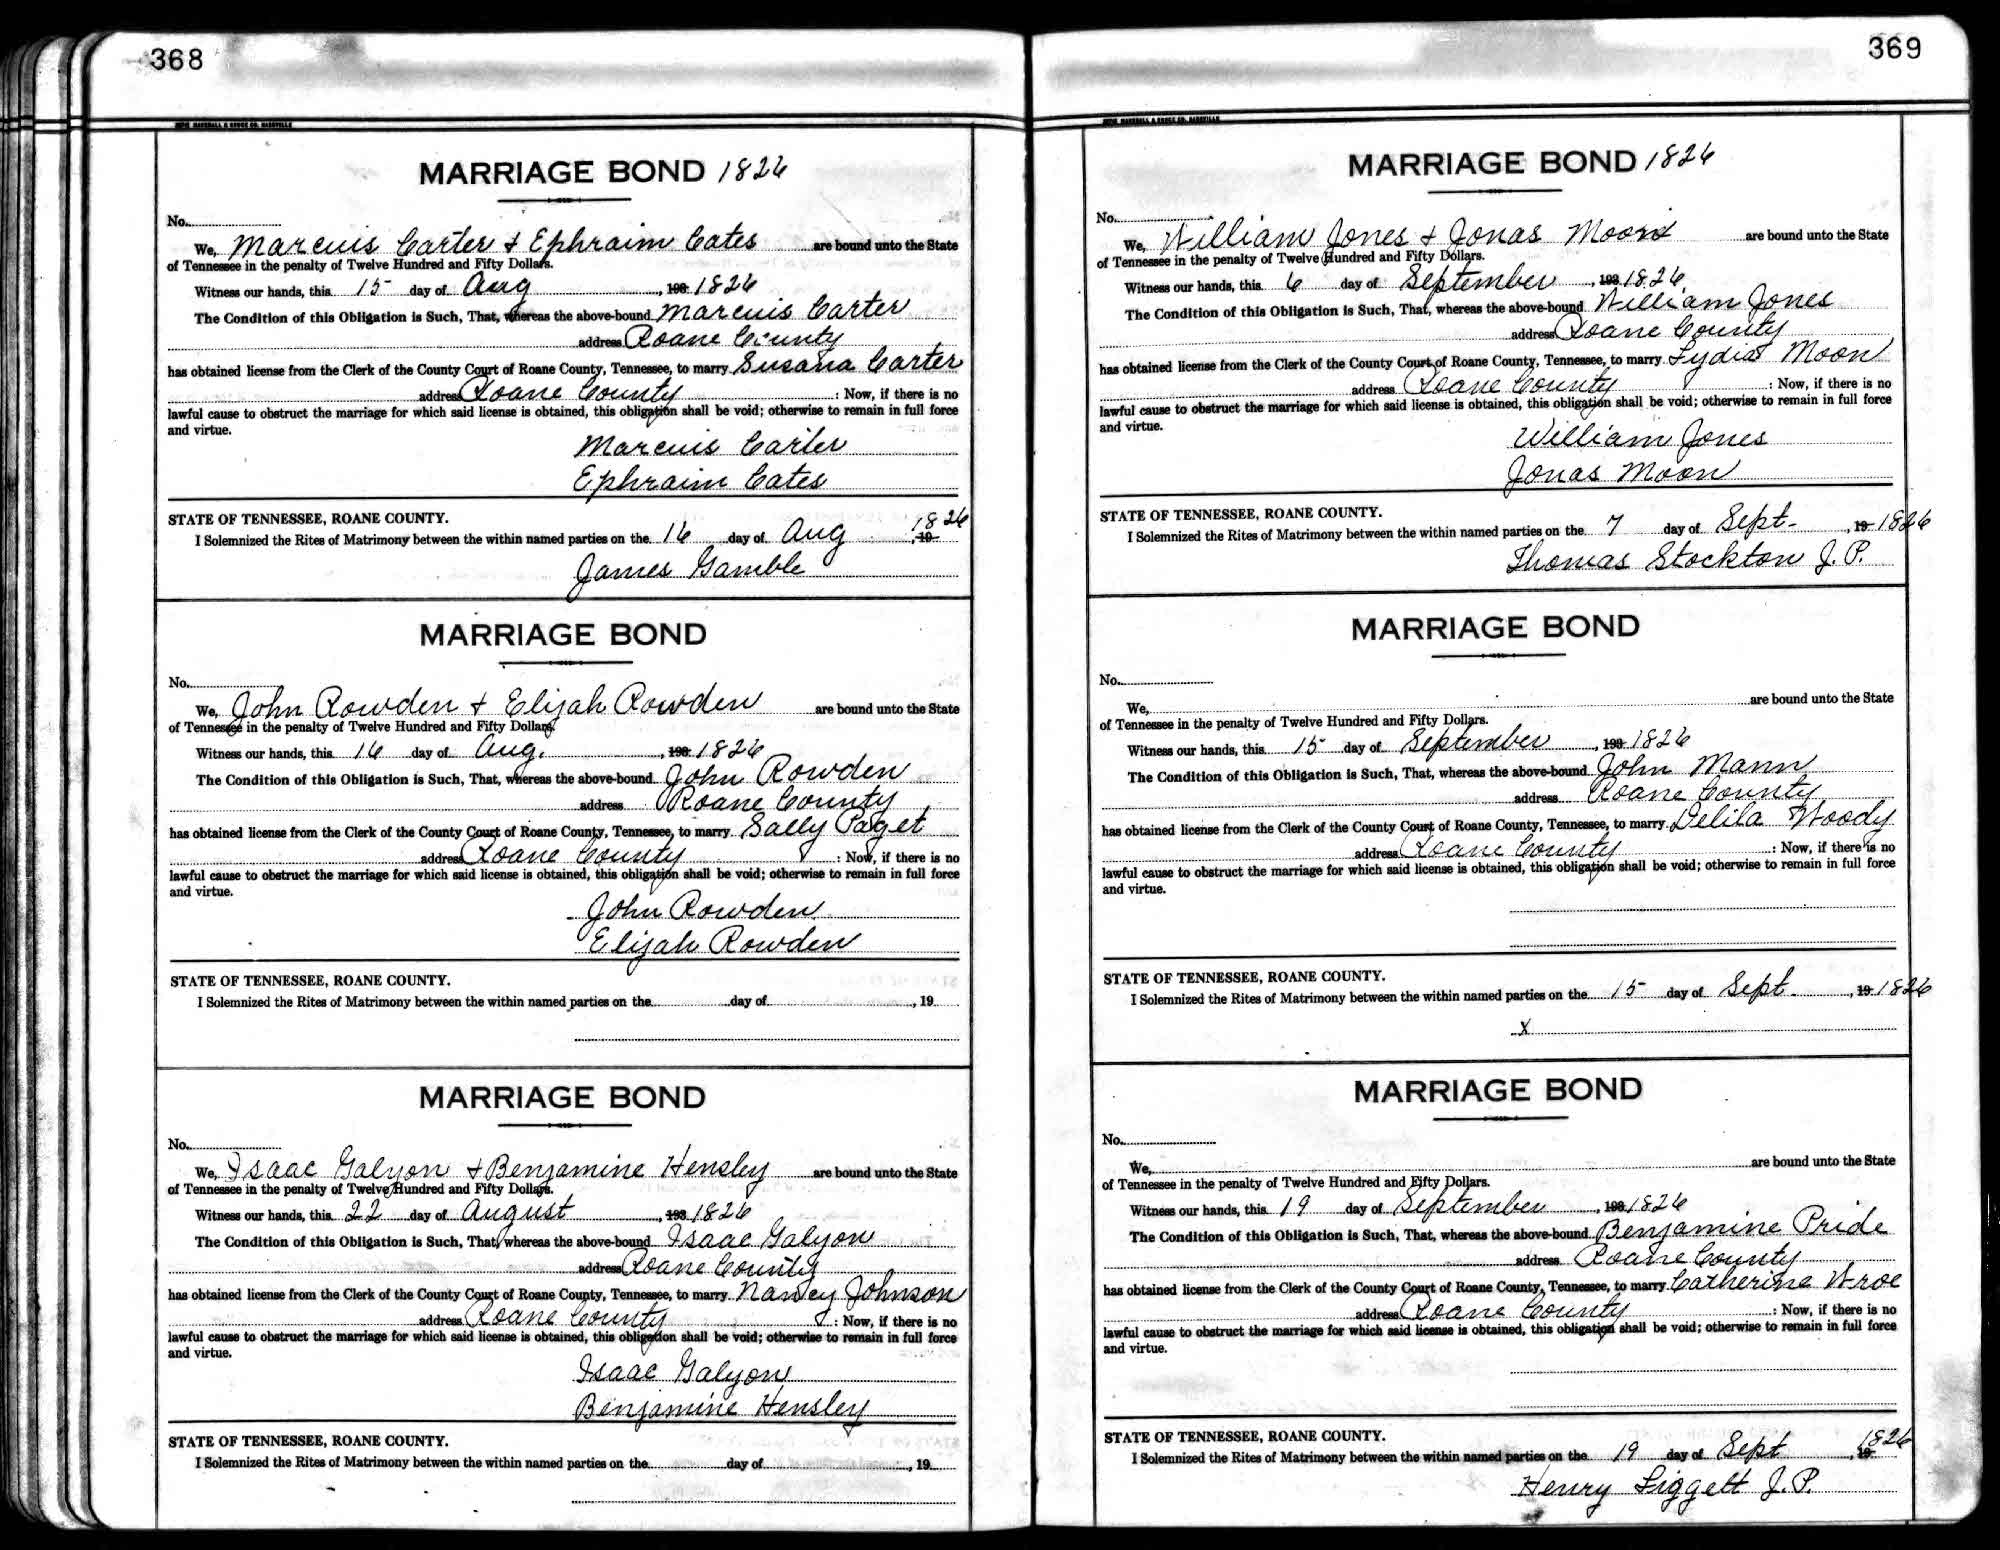 368
MARRIAGE BOND 1826
No.
We, Marcuis Carter & Ephraim Cates are bound unto the State
of Tennessee in the penalty of Twelve Hundred and Fifty Dollars.
Witness our hands, this 15 day of Aug , 193 1826
The Condition of this Obligation is Such, That, whereas the above-bound Marcuis Carter
address Roane County
has obtained license from the Clerk of the County Court of Roane County, Tennessee, to marry Susana Carter
address Roane County : Now, if there is no
lawful cause to obstruct the marriage for which said license is obtained, this obligation shall be void; otherwise to remain in full force
and virtue.
Marcuis Carter
Ephraim Cates
STATE OF TENNESSEE, ROANE COUNTY.
I Solemnized the Rites of Matrimony between the within named parties on the 16 day of Aug , 19 1826
James Gamble
MARRIAGE BOND
No.
We, John Rowden & Elijah Rowden are bound unto the State
of Tennessee in the penalty of Twelve Hundred and Fifty Dollars.
Witness our hands, this 16 day of Aug. , 193 1826
The Condition of this Obligation is Such, That, whereas the above-bound John Rowden
address Roane County
has obtained license from the Clerk of the County Court of Roane County, Tennessee, to marry Sally Paget
address Roane County : Now, if there is no
lawful cause to obstruct the marriage for which said license is obtained, this obligation shall be void; otherwise to remain in full force
and virtue.
John Rowden
Elijah Rowden
STATE OF TENNESSEE, ROANE COUNTY.
I Solemnized the Rites of Matrimony between the within named parties on the day of , 19
MARRIAGE BOND
No.
We, Isaac Galyon & Benjamine Hensley are bound unto the State
of Tennessee in the penalty of Twelve Hundred and Fifty Dollars.
Witness our hands, this 22 day of August , 193 1826
The Condition of this Obligation is Such, That, whereas the above-bound Isaac Galyon
address Roane County
has obtained license from the Clerk of the County Court of Roane County, Tennessee, to marry Nancy Johnson
address Roane County : Now, if there is no
lawful cause to obstruct the marriage for which said license is obtained, this obligation shall be void; otherwise to remain in full force
and virtue.
Isaac Galyon
Benjamine Hensley
STATE OF TENNESSEE, ROANE COUNTY.
I Solemnized the Rites of Matrimony between the within named parties on the day of , 19
369
MARRIAGE BOND 1826
No.
We, William Jones & Jonas Moon are bound unto the State
of Tennessee in the penalty of Twelve Hundred and Fifty Dollars.
Witness our hands, this 6 day of September , 193 1826
The Condition of this Obligation is Such, That, whereas the above-bound William Jones
address Roane County
has obtained license from the Clerk of the County Court of Roane County, Tennessee, to marry Lydia Moon
address Roane County : Now, if there is no
lawful cause to obstruct the marriage for which said license is obtained, this obligation shall be void; otherwise to remain in full force
and virtue.
William Jones
Jonas Moon
STATE OF TENNESSEE, ROANE COUNTY.
I Solemnized the Rites of Matrimony between the within named parties on the 7 day of Sept- , 19 1826
Thomas Stockton J. P.
MARRIAGE BOND
No.
We, are bound unto the State
of Tennessee in the penalty of Twelve Hundred and Fifty Dollars.
Witness our hands, this 15 day of September , 193 1826
The Condition of this Obligation is Such, That, whereas the above-bound John Mann
address Roane County
has obtained license from the Clerk of the County Court of Roane County, Tennessee, to marry Delila Woody
address Roane County : Now, if there is no
lawful cause to obstruct the marriage for which said license is obtained, this obligation shall be void; otherwise to remain in full force
and virtue.
STATE OF TENNESSEE, ROANE COUNTY.
I Solemnized the Rites of Matrimony between the within named parties on the 15 day of Sept- , 19 1826
x
MARRIAGE BOND
No.
We, are bound unto the State
of Tennessee in the penalty of Twelve Hundred and Fifty Dollars.
Witness our hands, this 19 day of September , 193 1826
The Condition of this Obligation is Such, That, whereas the above-bound Benjamine Pride
address Roane County
has obtained license from the Clerk of the County Court of Roane County, Tennessee, to marry Catherine Wroe
address Roane County : Now, if there is no
lawful cause to obstruct the marriage for which said license is obtained, this obligation shall be void; otherwise to remain in full force
and virtue.
STATE OF TENNESSEE, ROANE COUNTY.
I Solemnized the Rites of Matrimony between the within named parties on the 19 day of Sept , 19 1826
Henry Liggett J. P.